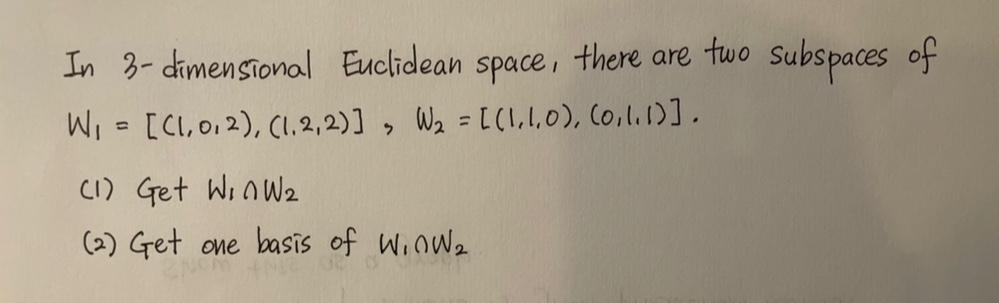 In 3-dimensional Euclidean space, there are two subspaces of
W₁ = [(1,0,2), (1,2,2)] , W₂ = [(1,1,0), (0,1,1)] .
(1) Get W₁∩W₂
(2) Get one basis of W₁∩W₂